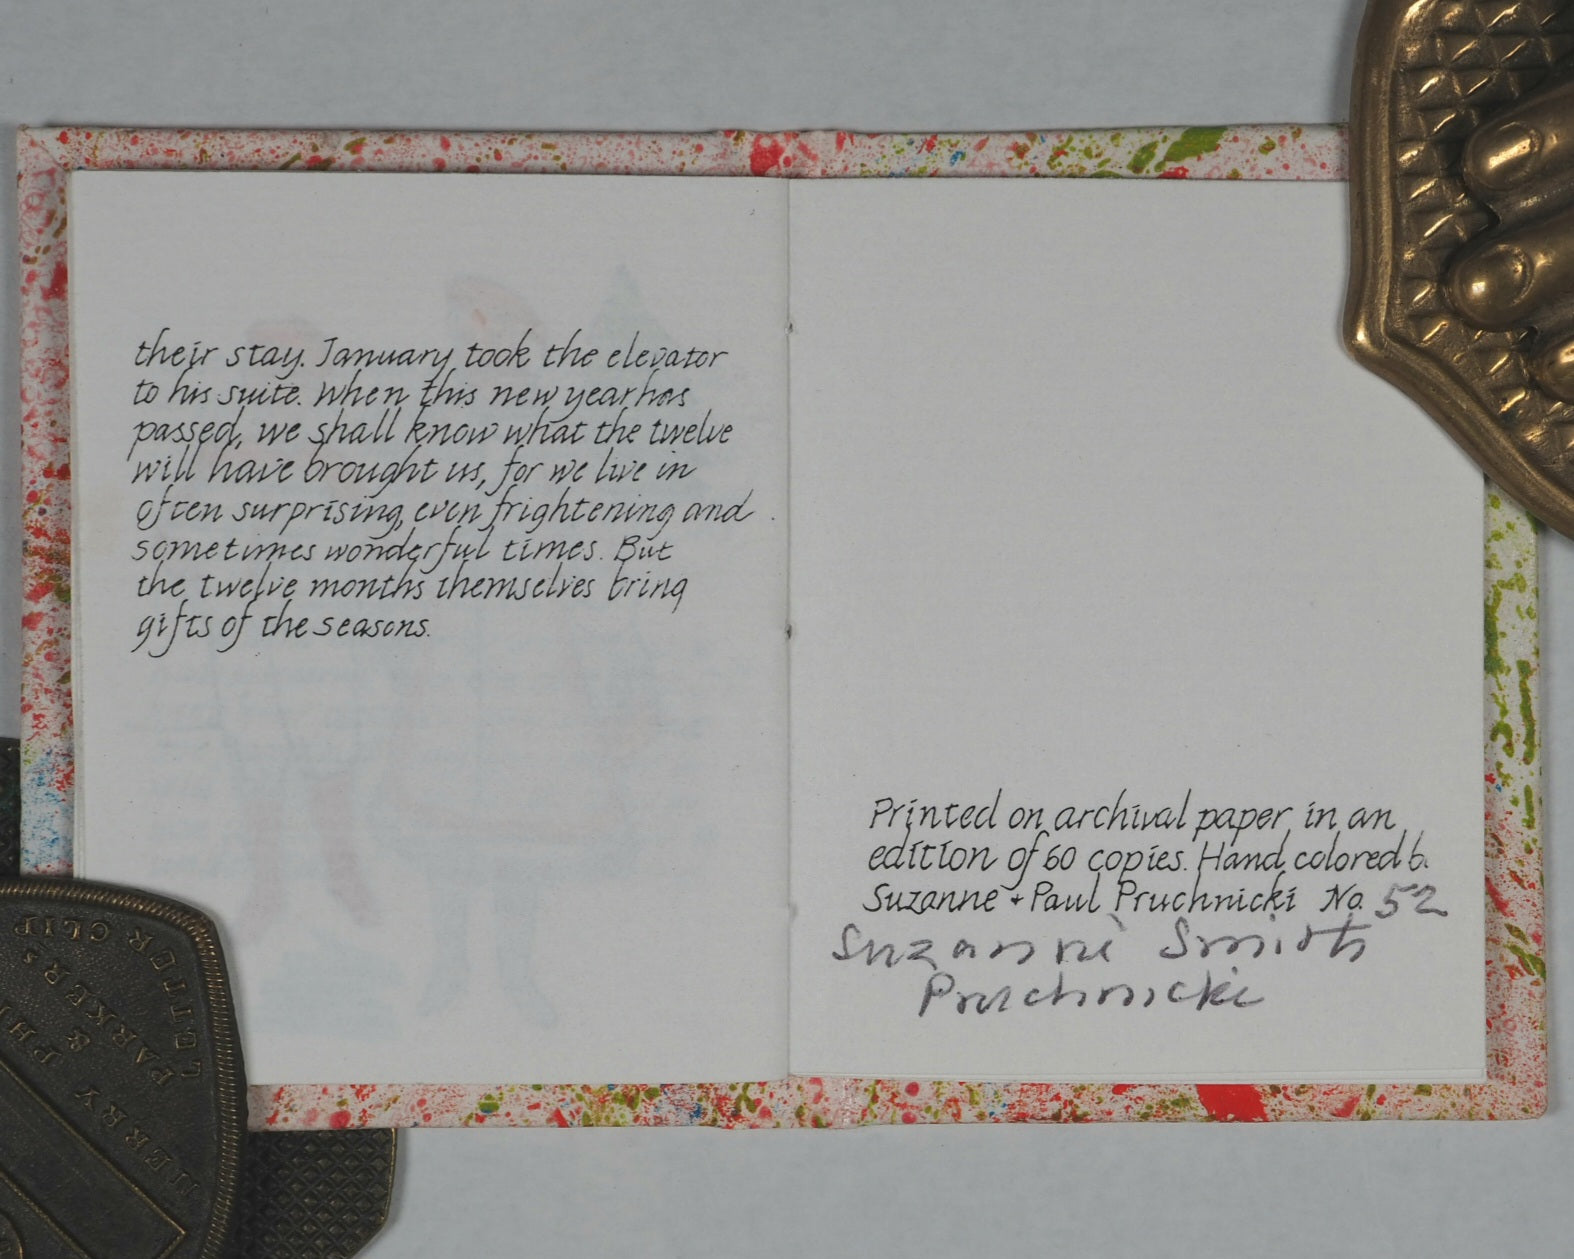 their stay. January took the elevator
to his suite. When this new year has
passed, we shall know what the twelve
will have brought us, for we live in
often surprising, even frightening and
sometimes wonderful times. But
the twelve months themselves bring
gifts of the seasons.
Printed on archival paper in an
edition of 60 copies. Hand colored b
Suzanne + Paul Pruchnicki No. 52
Suzanne Smith
Pruchnicki
MERRY PHI
& PARKER'S
LETTER CLIP